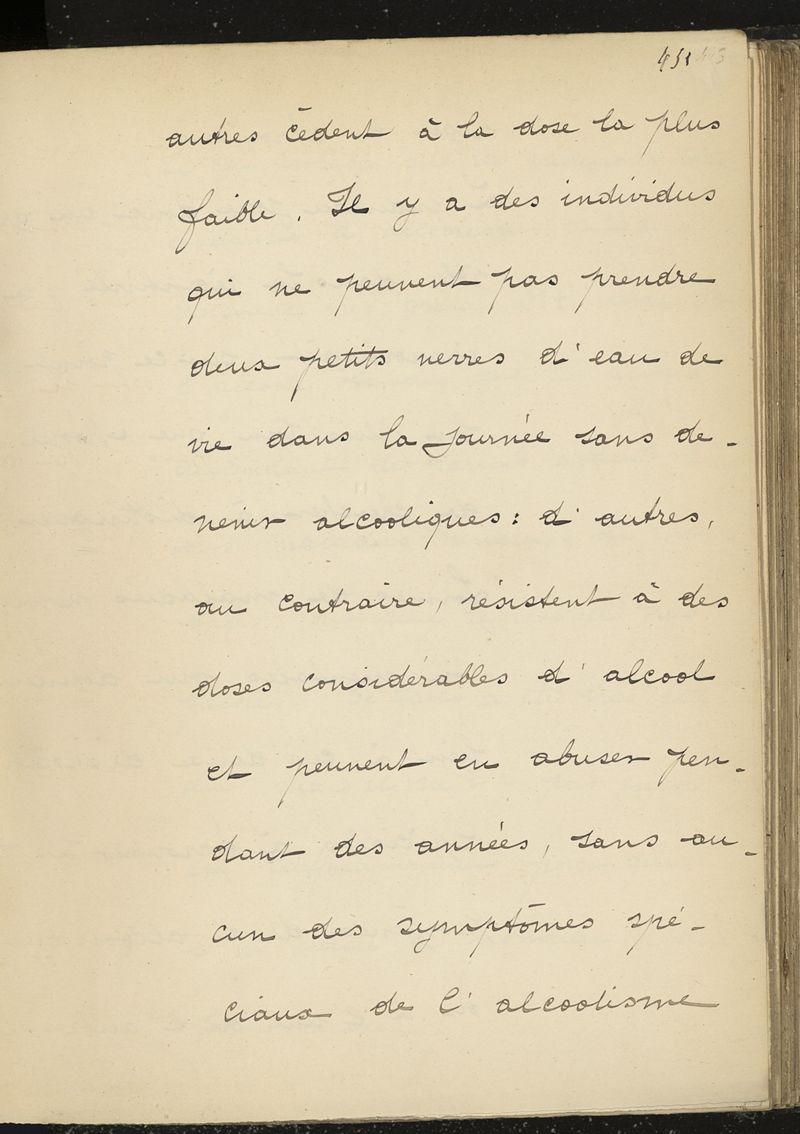 451
autres cèdent à la dose la plus
faible. Il y a des individus
qui ne peuvent pas prendre
deux petits verres d'eau de
vie dans la journée sans de-
venir alcooliques: d'autres,
au contraire, résistent à des
doses considérables d'alcool
et peuvent en abuser pen-
dant des années, sans au-
cun des symptômes spé-
ciaux de l'alcoolisme